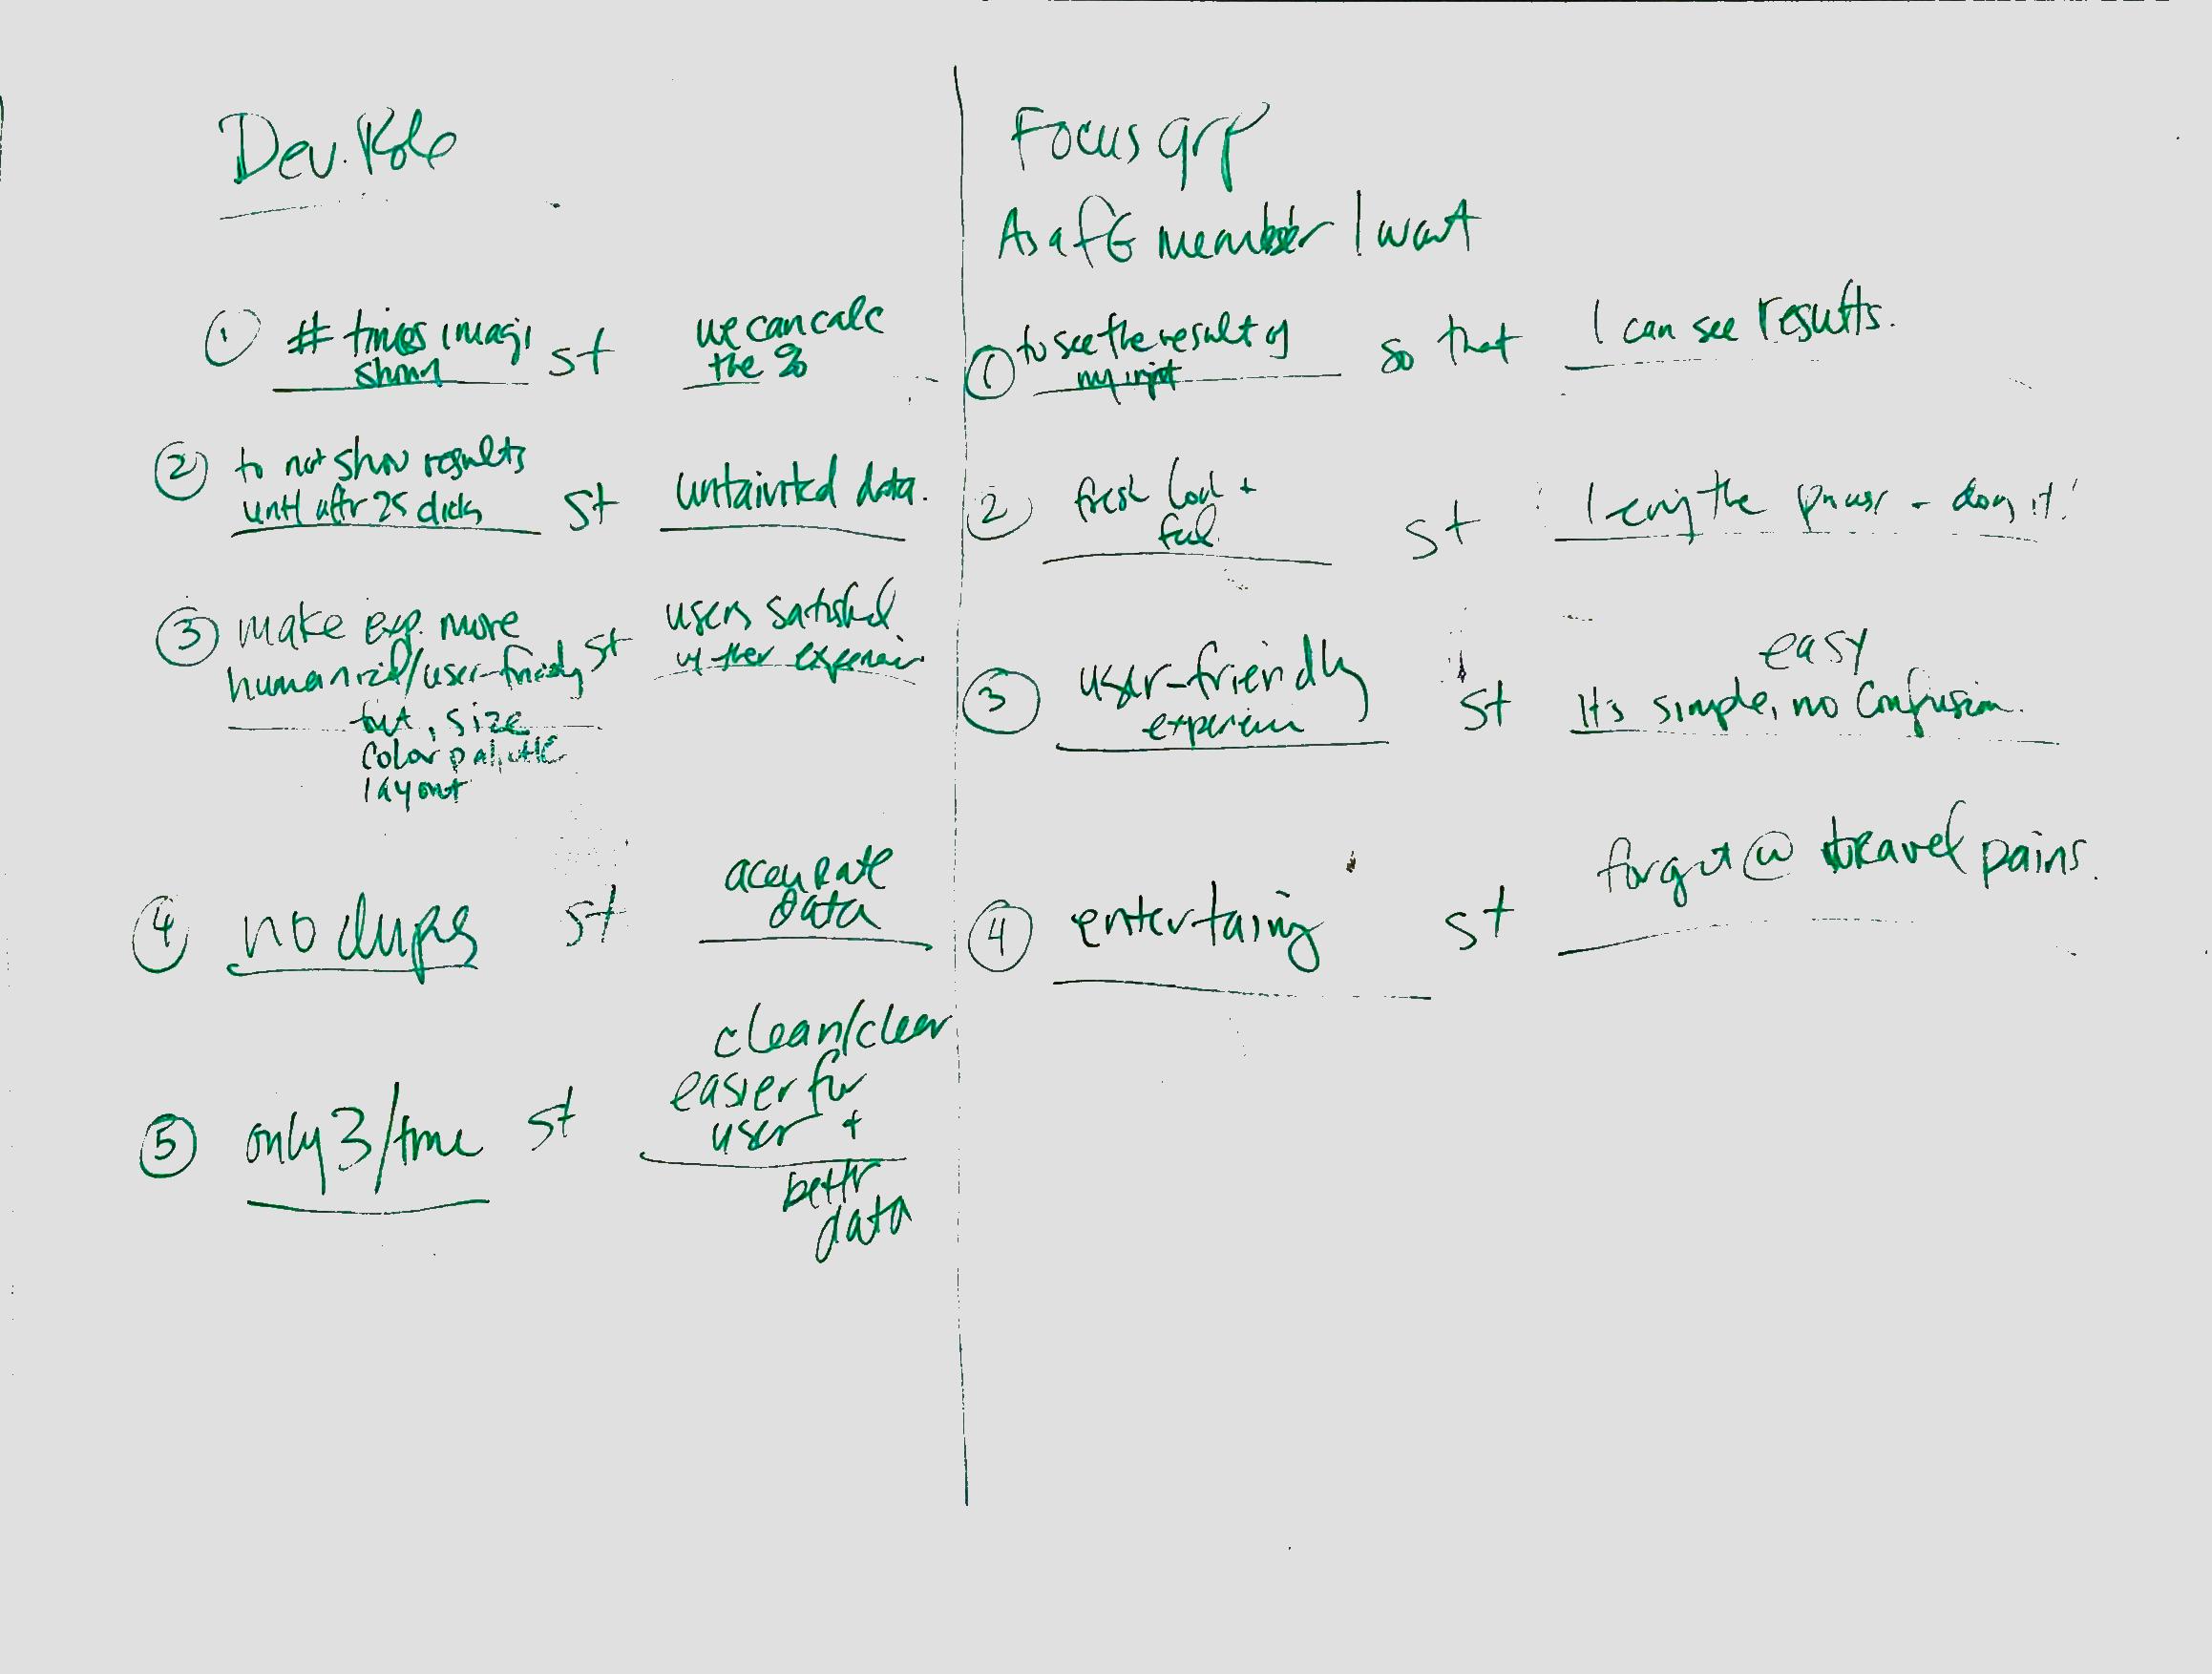 Dev. Role
① # times imag shown st we can calc the %
② to not show results until aftr 25 clicks st untainted data.
③ make exp. more humanized/user-friendly st users satisfied w/ their experien
font, size
color pallette
layout
④ no dups st accurate data
⑤ only 3/time st clean/clear easier for user + bettr data
Focus grp
As a FG member I want
① to see the result of my input so that I can see results.
② fresh look + feel. st I enjoy the - doing it!
③ user-friendly experien st easy
It's simple, no confusion.
④ entertaing st forget @ travel pains.